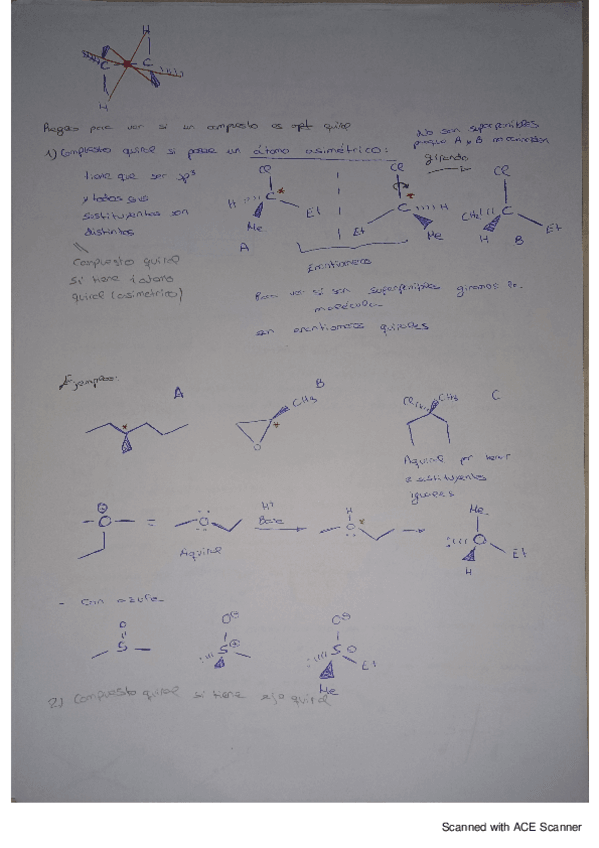 H
C C
H
Reglas para ver si un compuesto es opt quiral
1) Compuesto quiral si posee un átomo asimétrico:
No son superponibles
porque A y B no coinciden
girando
tiene que ser sp³
y todos sus
sustituyentes son
distintos
Cl
H C *
Et
Me
A
Cl
C * H
Et
Me
Cl
CH3 C
Et
H B
Compuesto quiral
si tiene 1 átomo
quiral (asimétrico)
Enantiómeros
Para ver si son superponibles giramos la
molécula
son enantiómeros quirales
Ejemplos:
A
*
B
CH3
*
O
C
Cl CH3
Aquiral por tener
2 sustituyentes
iguales
O =
O
Aquiral
H+
Base
H
O *
Me
O
Et
H
- Con azufre
O
S
O
S
O
S
Et
Me
2) Compuesto quiral si tiene eje quiral
Scanned with ACE Scanner